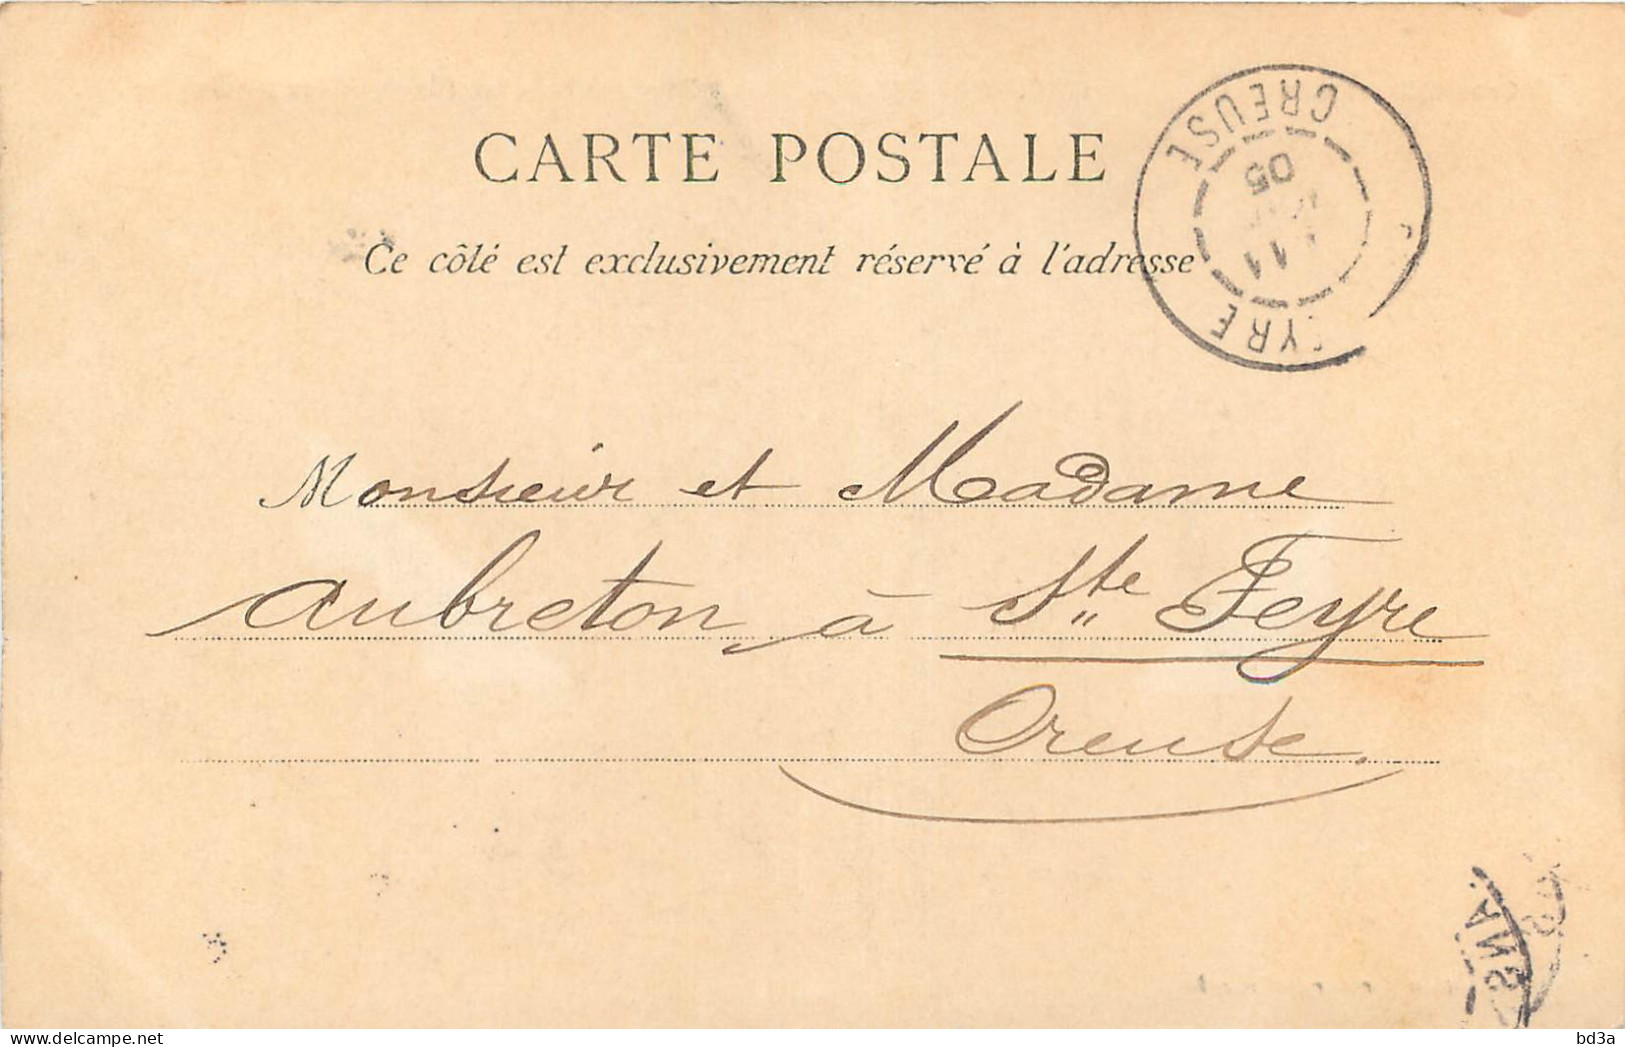 CARTE POSTALE
Ce côté est exclusivement réservé à l'adresse
CREUSE
05
11
EYRE
Monsieur et Madame
Aubreton, à Ste Feyre
Creuse.
bd3a